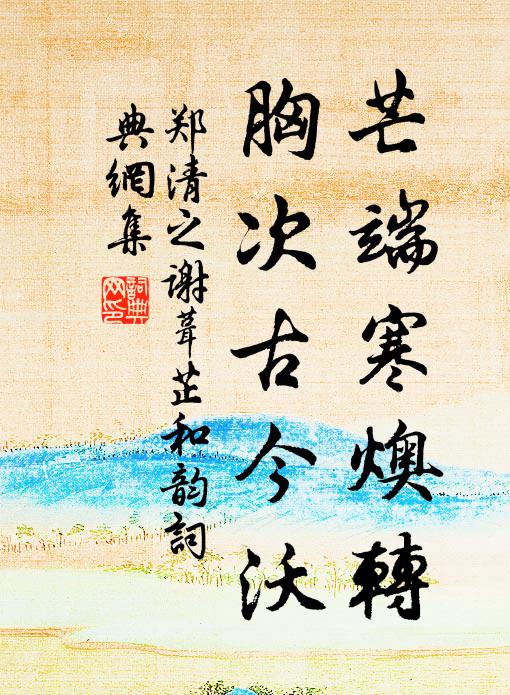 芒端寒燠轉
胸次古今沃
郑清之谢葺芷和韵詞
典網集
詞典
网印